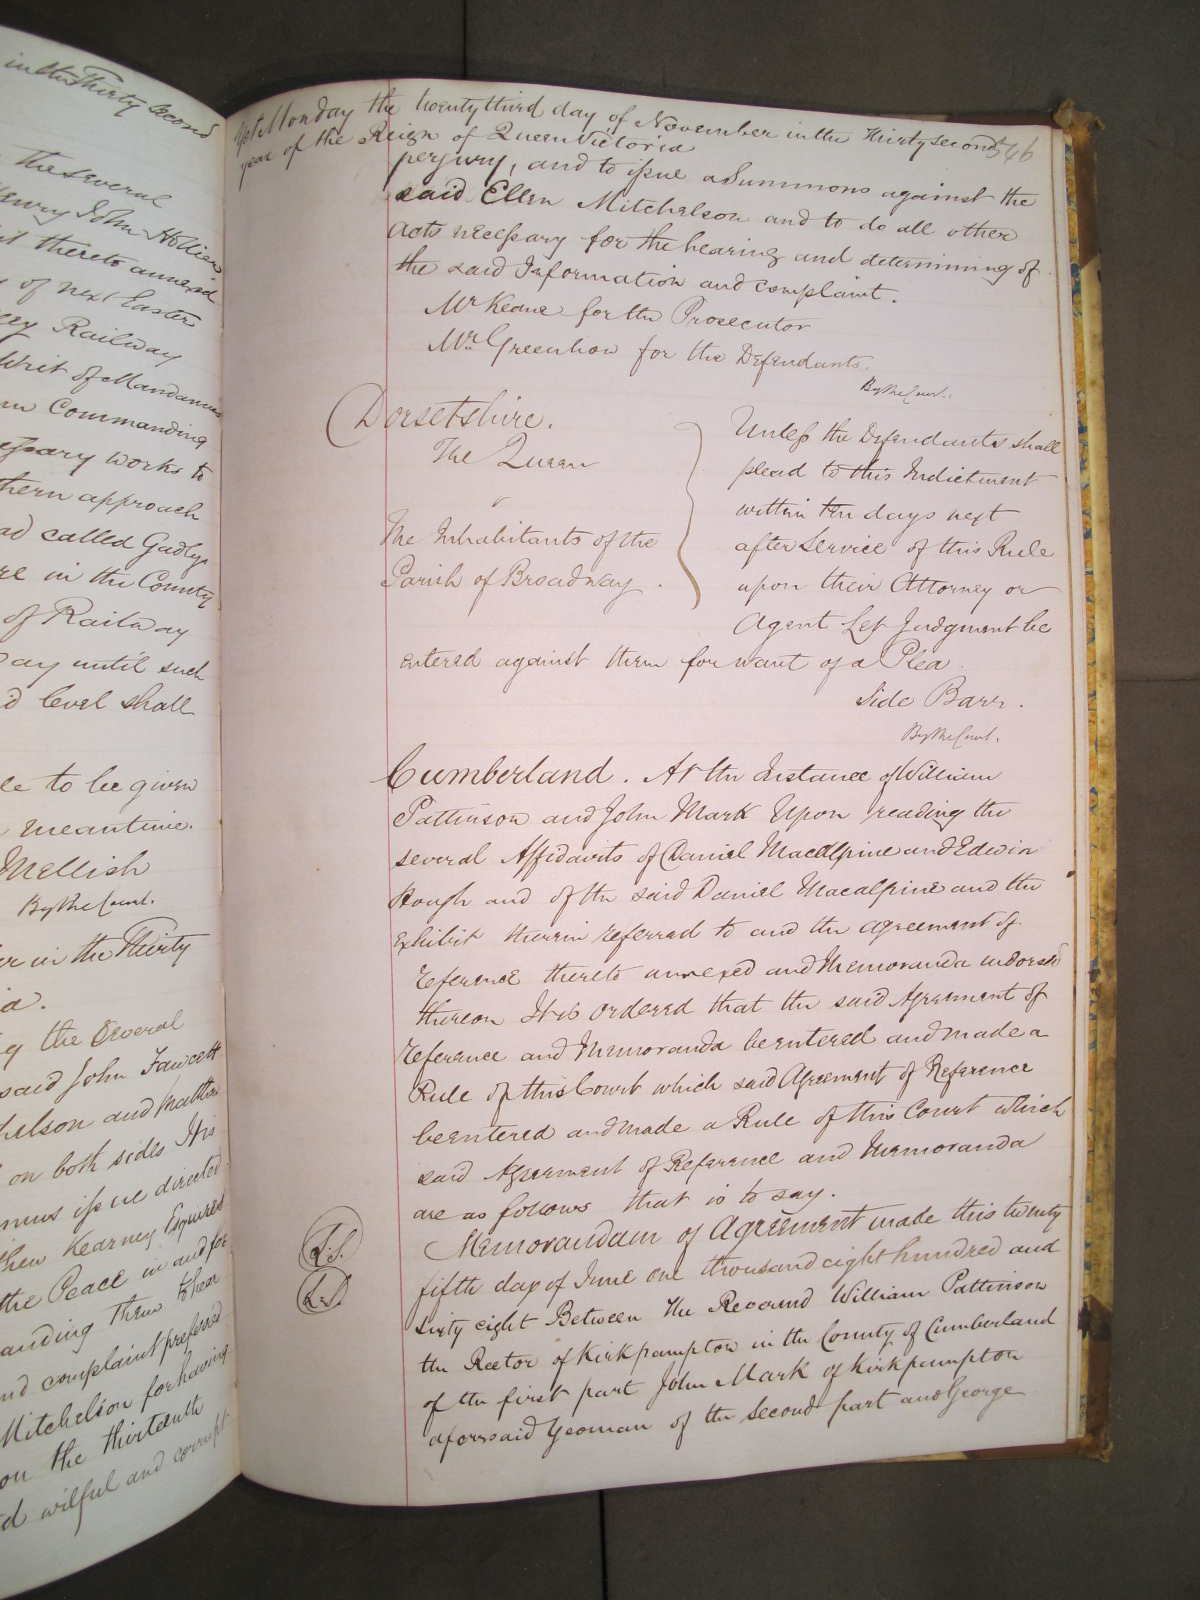 in the Thirty Second
The several
Henry John Hollier
thereto annexed
of next Easter
Railway
Writ of Mandamus
Commanding
necessary works to
approach
called Gadlys
in the County
of Railway
until such
level shall
to be given
meantime.
Mellish
By the Court.
in the Thirty
the several
said John Fawcett
and Matthew
on both sides It is
issue directed
Kearney Esquires
the Peace in and for
them to hear
and complaint preferred
Mitchelson for having
on the thirteenth
wilful and corrupt
Monday the twenty third day of November in the thirty second 546
year of the Reign of Queen Victoria
perjury, and to issue a Summons against the
said Ellen Mitchelson and to do all other
acts necessary for the hearing and determining of
the said Information and complaint.
Mr Keane for the Prosecutor
Mr. Greenhow for the Defendants.
By the Court.
Dorsetshire.
The Queen
v
The Inhabitants of the
Parish of Broadway.
Unless the Defendants shall
plead to this Indictment
within ten days next
after service of this Rule
upon their Attorney or
Agent Let Judgment be
entered against them for want of a Plea.
Side Barr.
By the Court.
Cumberland. At the Instance of William
Pattinson and John Mark Upon reading the
several Affidavits of Daniel Macalpine and Edwin
Hough and of the said Daniel Macalpine and the
Exhibit therein referred to and the agreement of
reference thereto annexed and Memoranda indorsed
thereon It is ordered that the said Agreement of
reference and Memoranda be entered and made a
Rule of this Court which said Agreement of Reference
be entered and made a Rule of this Court which
said Agreement of Reference and Memoranda
are as follows that is to say.
L.S.
L.S.
Memorandum of Agreement made this twenty
fifth day of June one thousand eight hundred and
sixty eight Between The Reverend William Pattinson
the Rector of Kirkpampton in the County of Cumberland
of the first part John Mark of Kirkpampton
aforesaid Yeoman of the second part and George